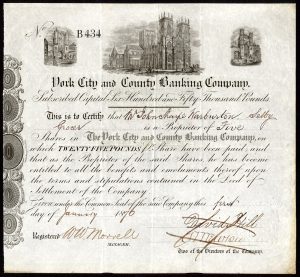 No B434
York City and County Banking Company.
Subscribed Capital Six Hundred and Fifty Thousand Pounds
This is to Certify that Mr John Sharp Warburton Selby
Grocer is a Proprietor of Five
Shares in The York City and County Banking Company, on
which TWENTY FIVE POUNDS Share have been paid, and
that as the Proprietor of the said Shares, he has become
entitled to all the benefits and emoluments thereof upon
the terms and stipulations contained in the Deed of
Settlement of the Company
Given under the Common Seal of the said Company this first
day of January 18
Registered
MANAGER.
Two of the Directors of the Company.